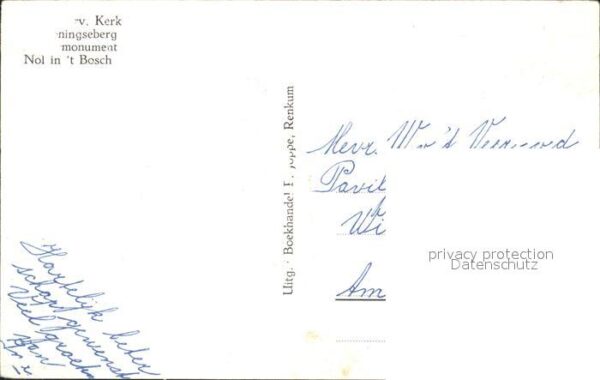 rv. Kerk
eningseberg
monument
Nol in 't Bosch
Uitg. Boekhandel Joppe, Renkum
Mevr. W v 't
Pavil
Wi
Am
privacy protection
Datenschutz
Hartelijk beter
schap gewenst
Veel groetn
van